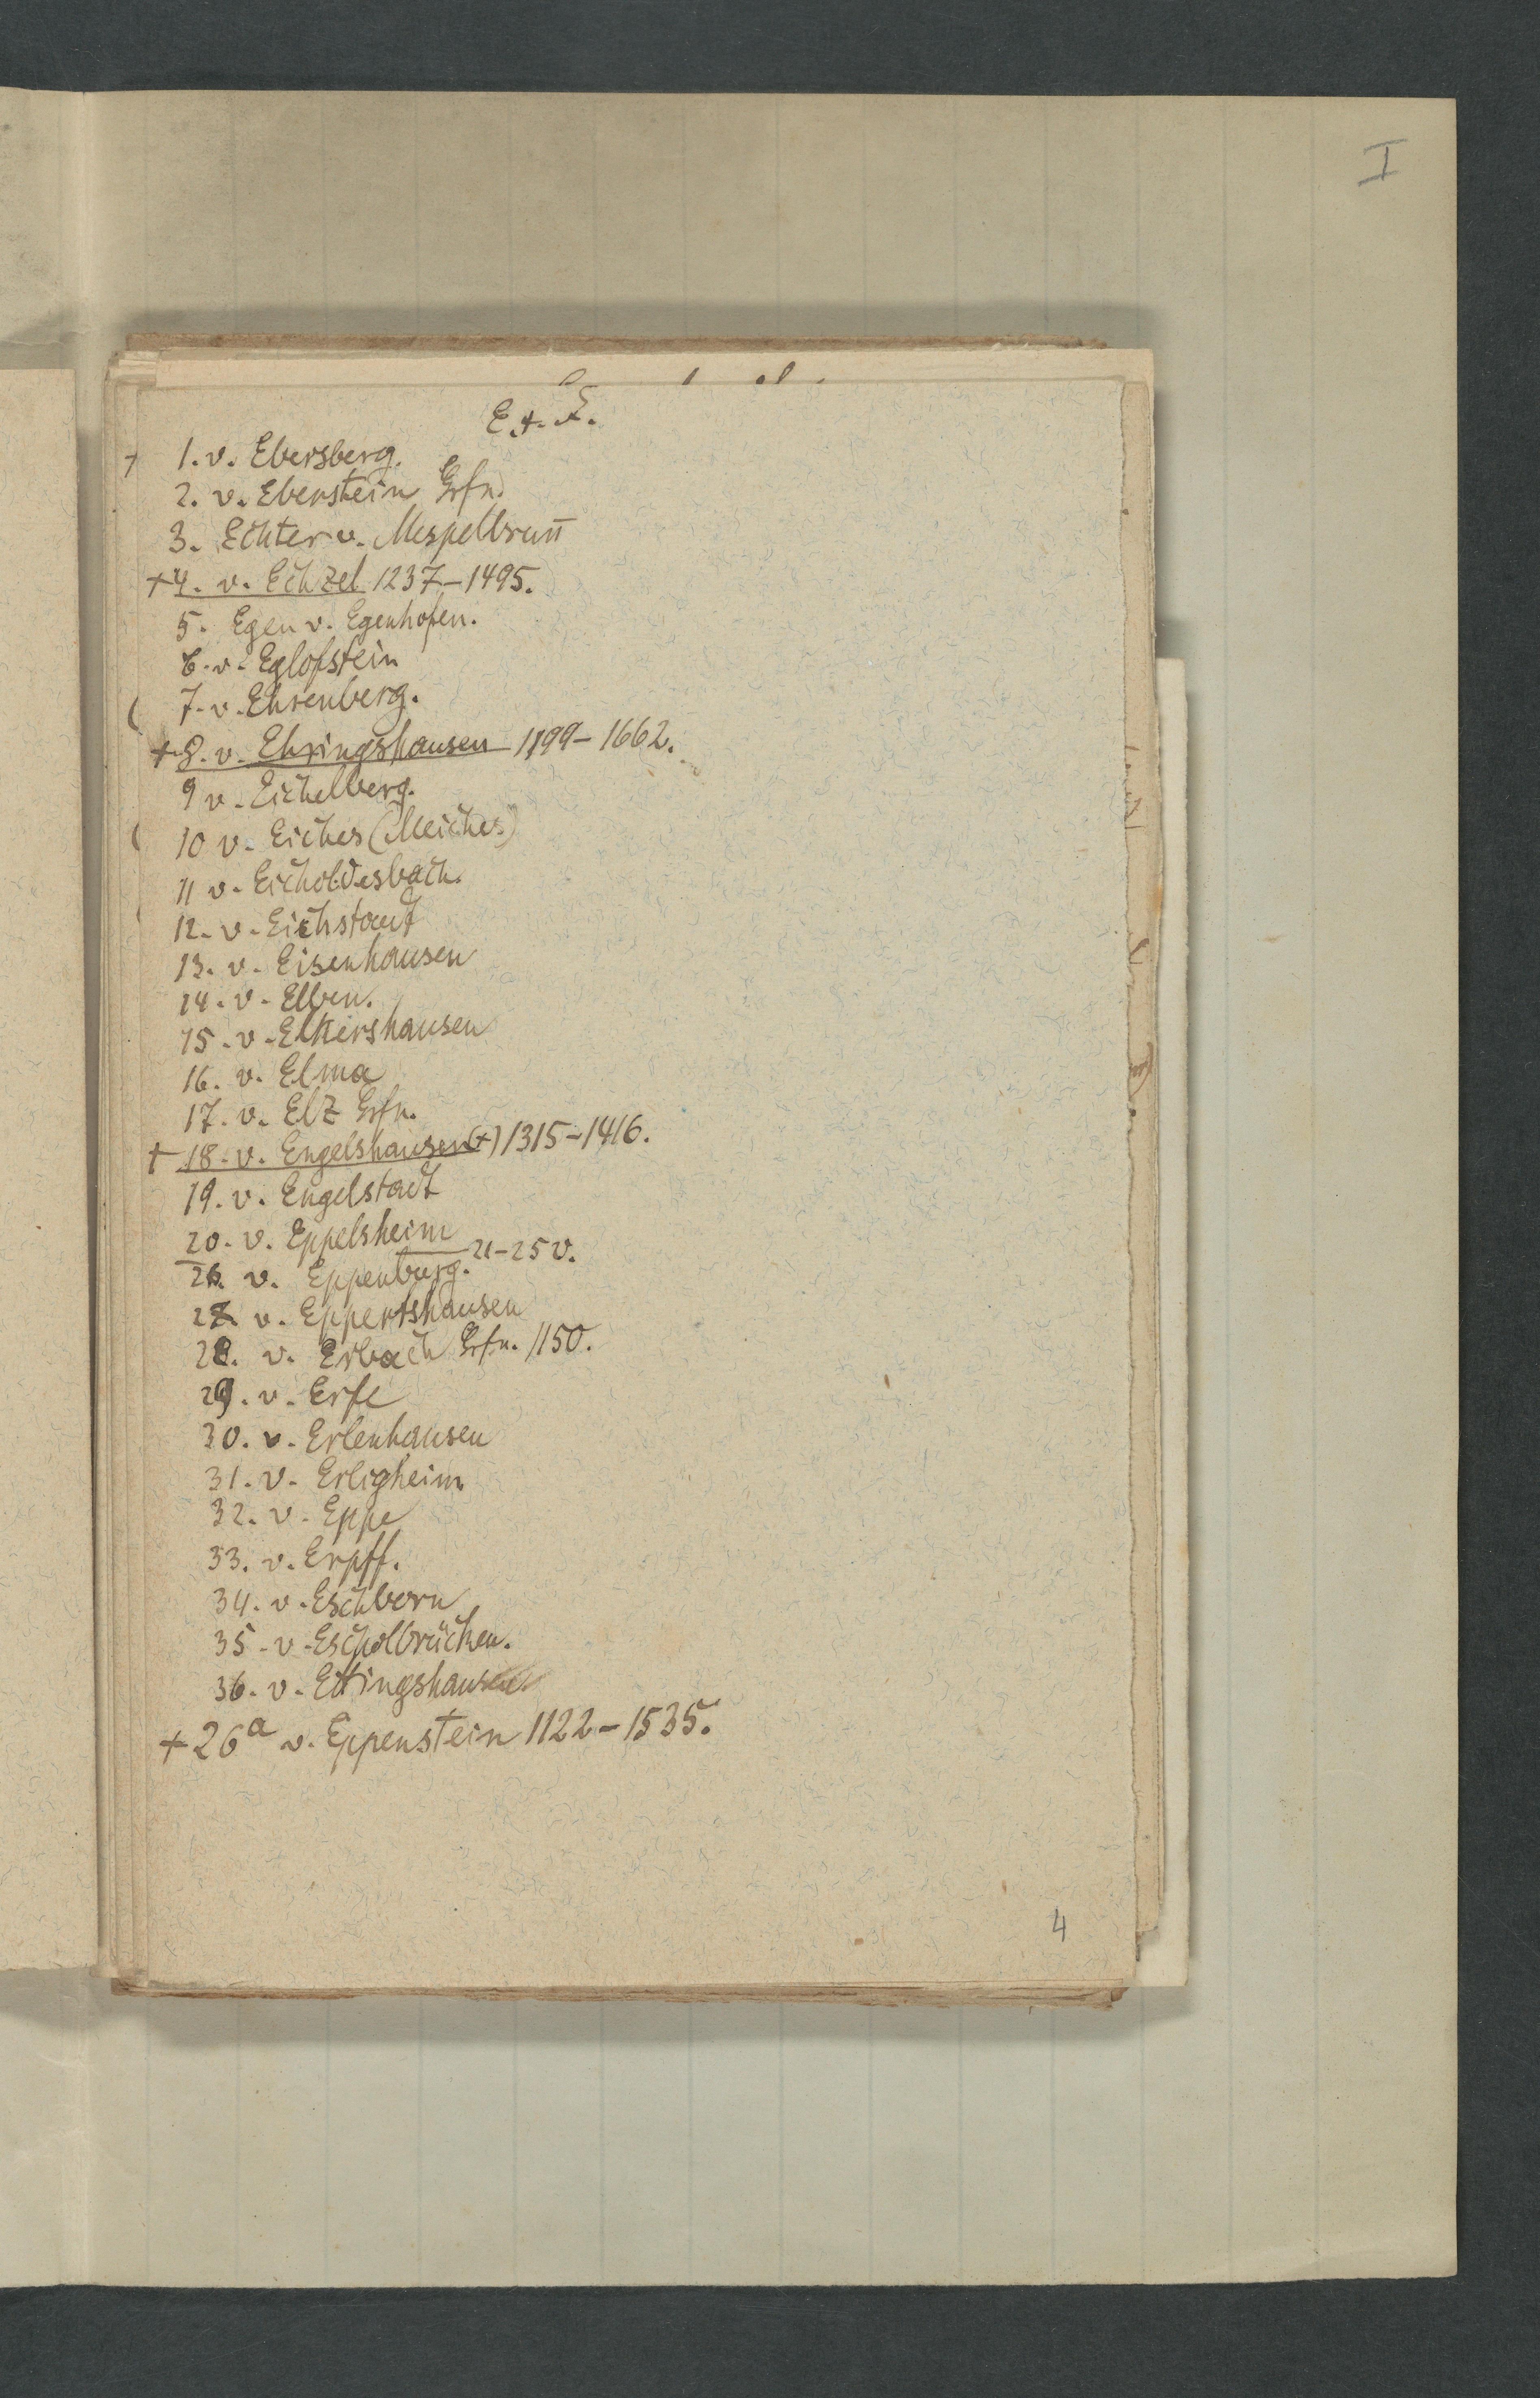 I
E. +. F.
+ 1. v. Ebersberg.
2. v. Eberstein Grfn.
3. Echter v. Mespelbrun̄
+ 4. v. Echzel 1237-1495.
5. Egen v. Egenhofen.
6. v. Eglofstein
7. v. Ehrenberg.
+ 8. v. Ehringshausen 1199-1662.
9 v. Eichelberg.
10 v. Eiches (Meiches)
11 v. Eicholdesbach.
12. v. Eichstadt
13. v. Eisenhausen
14. v. Elben.
15. v. Elkershausen
16. v. Elma
17. v. Elz Grfn.
+ 18. v. Engelshausen (+) 1315-1416.
19. v. Engelstadt
20. v. Eppelsheim
21-25 v.
26. v. Eppenburg.
27. v. Eppertshausen
28. v. Erbach Grfn. 1150.
29. v. Erfe
30. v. Erlenhausen
31. v. Erligheim
32. v. Eppe
33. v. Erpff.
34. v. Eschborn
35. v. Escholbrücken.
36. v. Ettingshausen
+ 26a v. Eppenstein 1122-1535.
4